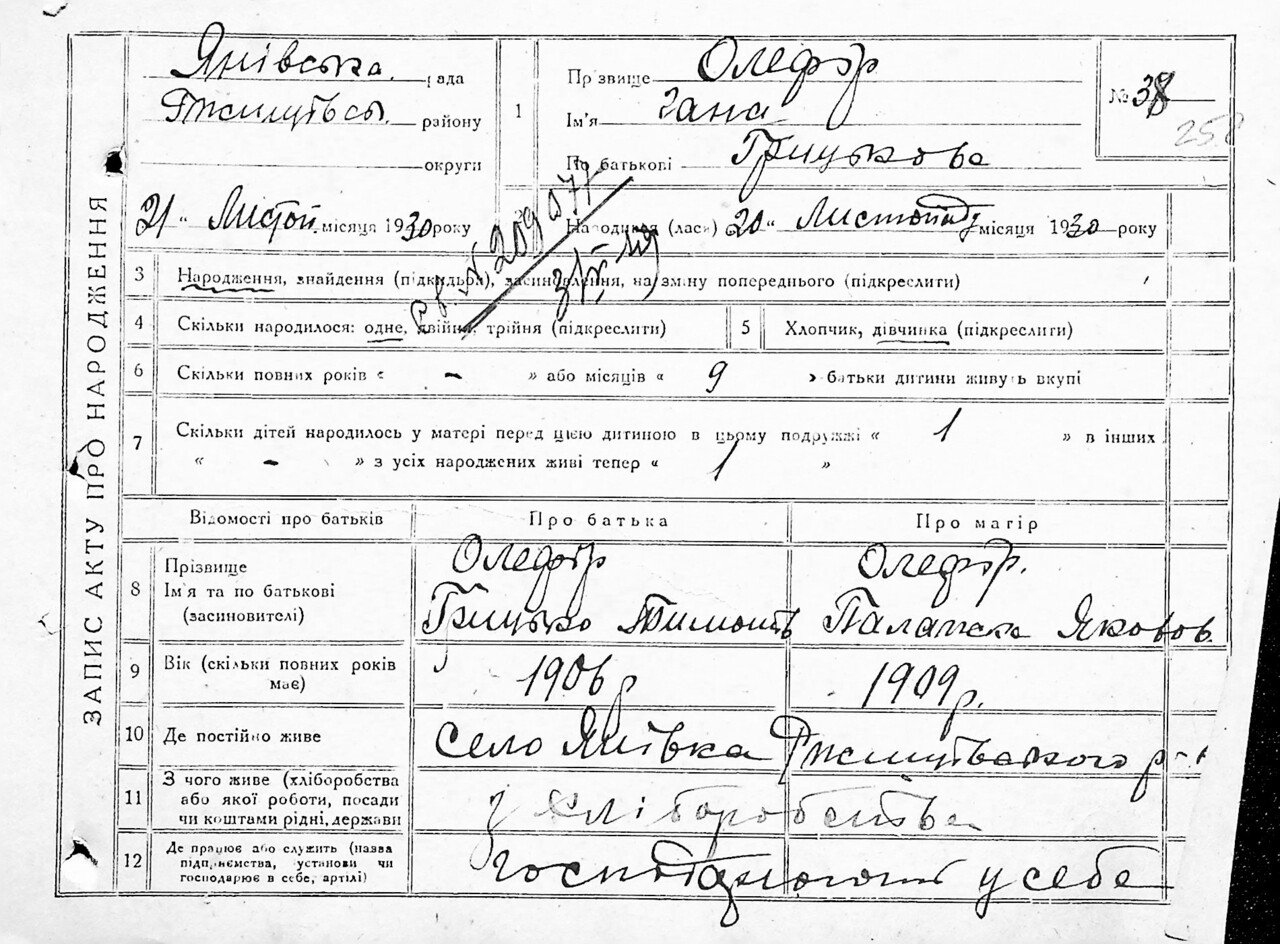 ЗАПИС АКТУ ПРО НАРОДЖЕННЯ
Янівська рада
району
округи
1
Прізвище Олефір
Ім'я Гана
По батькові Грицькова
№ 38
21 " Листоп. місяця 1930 року
Народився (лась) 20 " Листопаду місяця 1930 року
Св. № 209071
3 Народження, знайдення (підкидька), засиновлення, на зміну попереднього (підкреслити)
4 Скільки народилося: одне, двійня, трійня (підкреслити)
5 Хлопчик, дівчинка (підкреслити)
6 Скільки повних років « - » або місяців « 9 » батьки дитини живуть вкупі
7 Скільки дітей народилось у матері перед цією дитиною в цьому подружжі « 1 » в інших
« - » з усіх народжених живі тепер « 1 »
Відомості про батьків
Про батька
Про матір
8 Прізвище
Ім'я та по батькові
(засиновителі)
Олефір
Грицько Тимоть
Олефір.
Палажка Яковов
9 Вік (скільки повних років
має)
1906 р
1909 р.
10 Де постійно живе
село Янівка
11 З чого живе (хліборобства
або якої роботи, посади
чи коштами рідні, держави
з хліборобства
12 Де працює або служить (назва
підприємства, установи чи
господарює в себе, артілі)
у себе